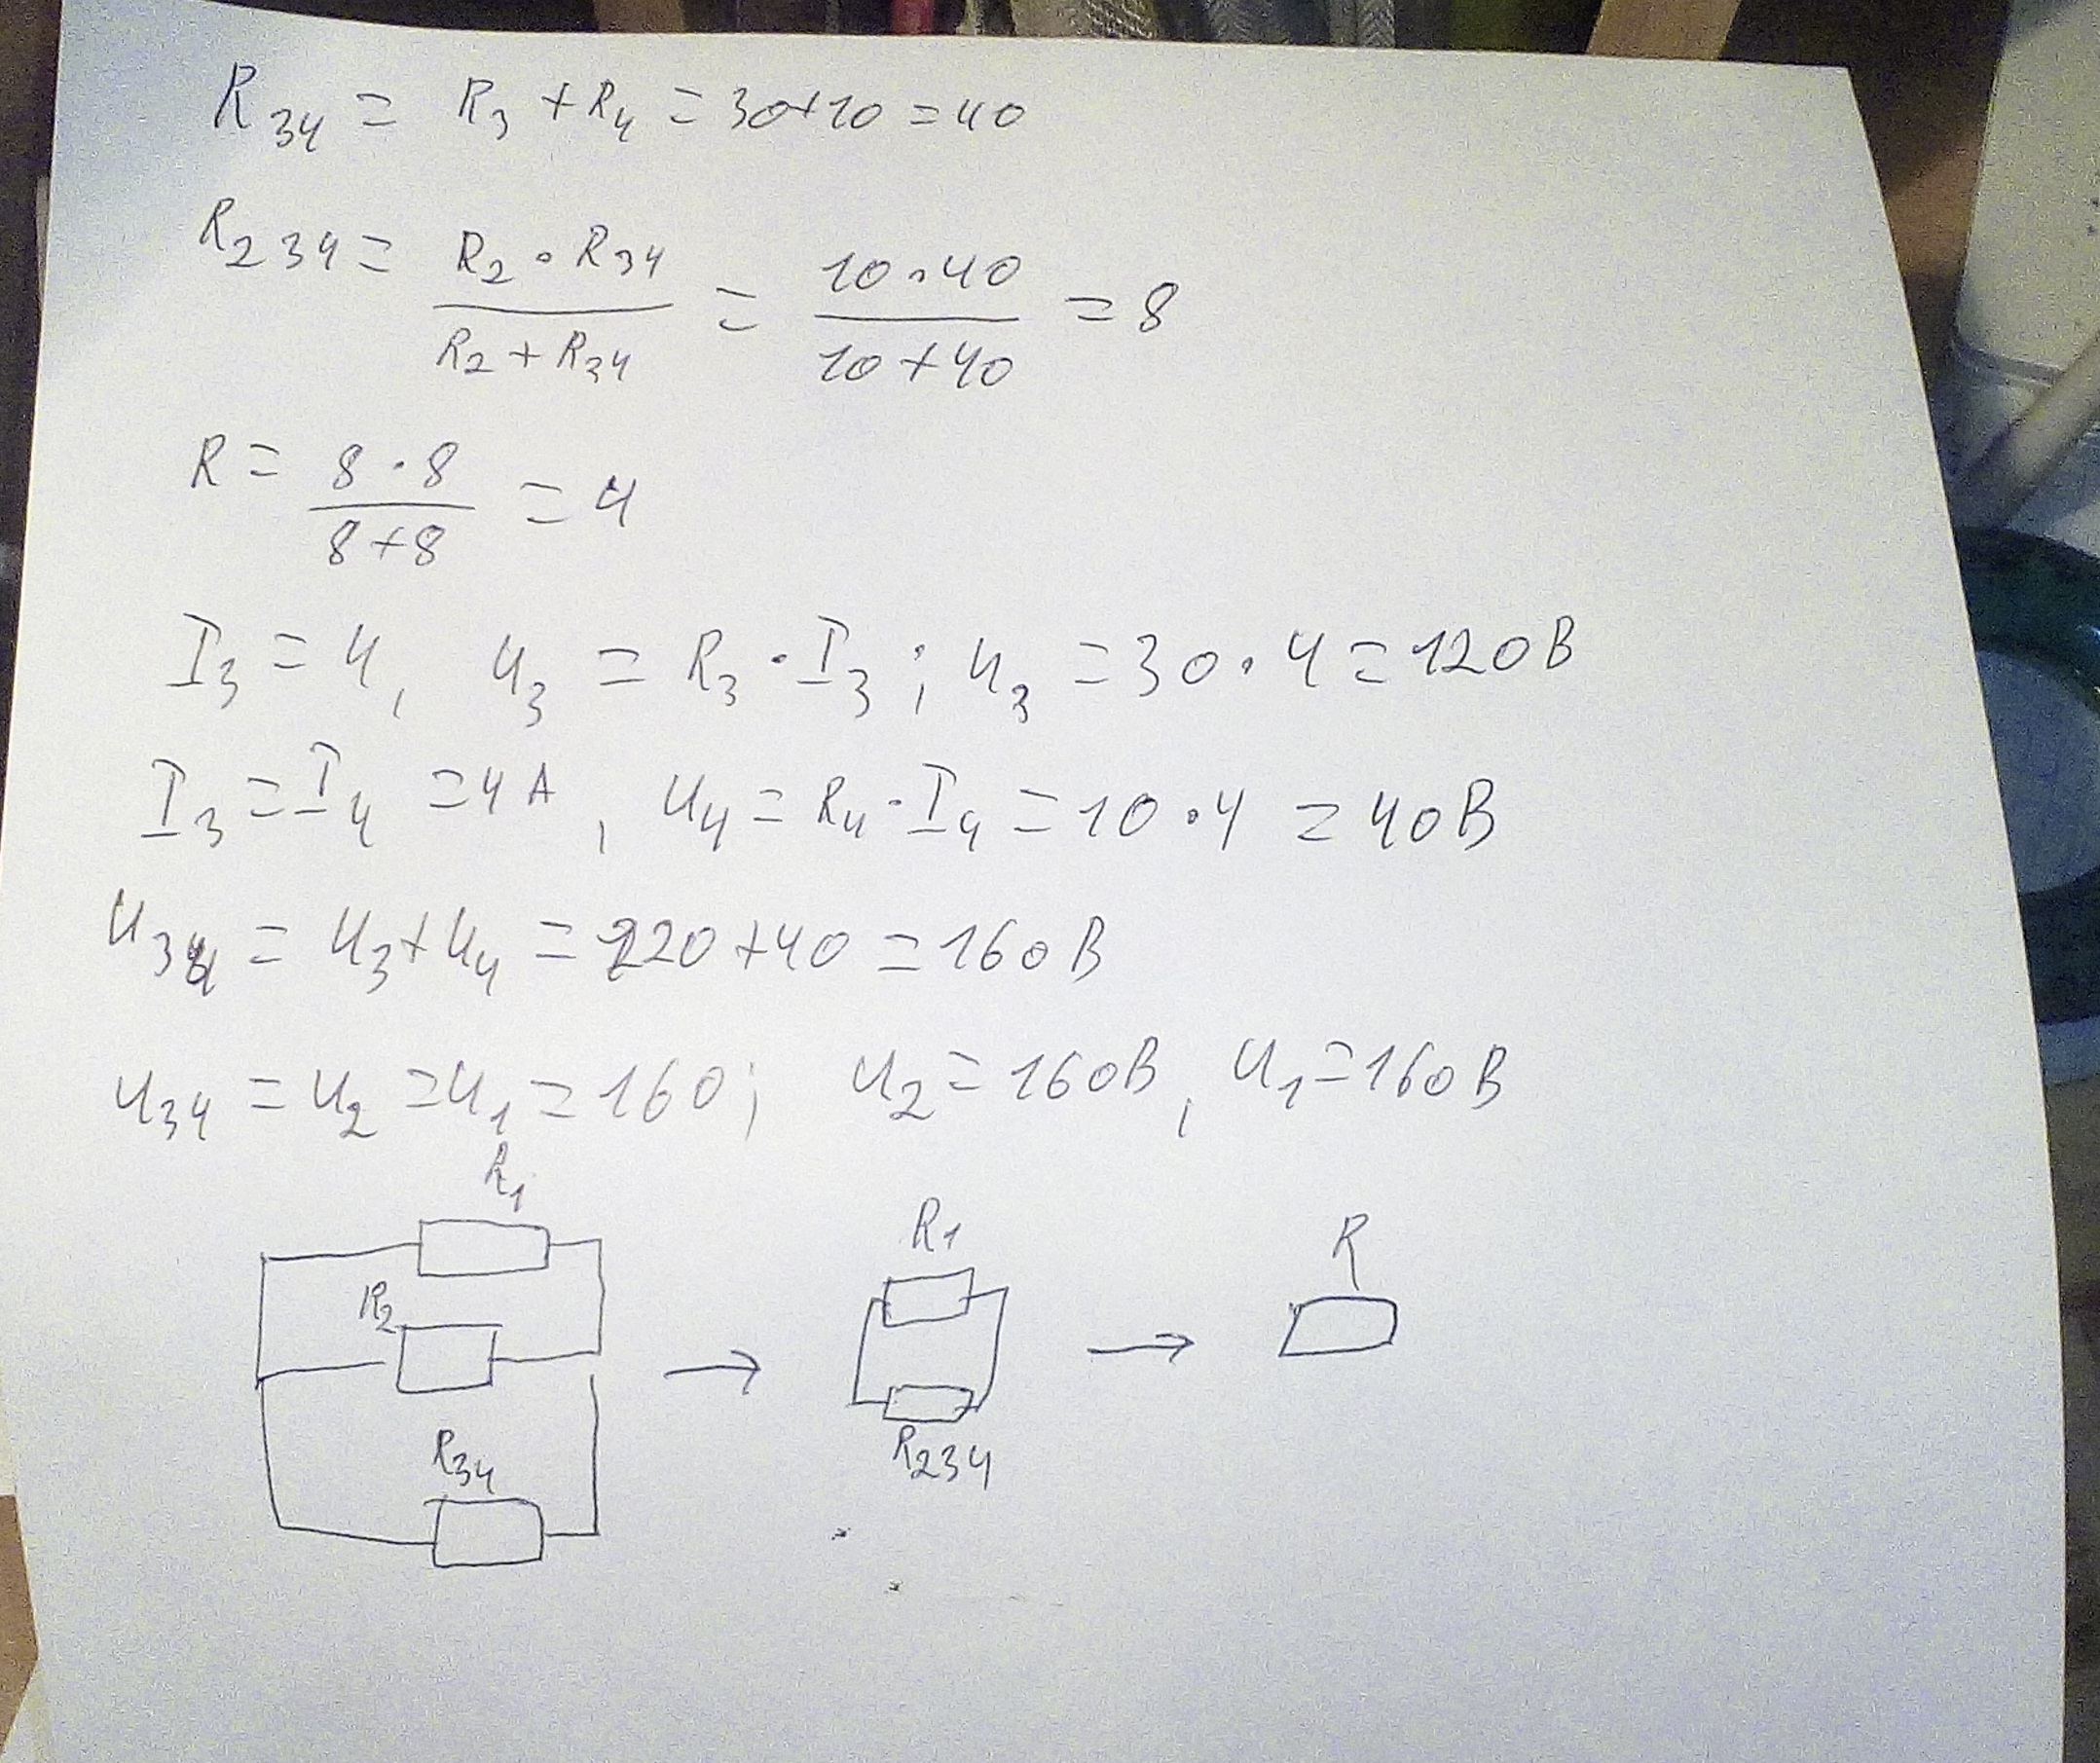 R₃₄ = R₃ + R₄ = 30+10 = 40
R₂₃₄ = (R₂ · R₃₄)/(R₂ + R₃₄) = (10 · 40)/(10 + 40) = 8
R = (8 · 8)/(8 + 8) = 4
I₃ = 4, U₃ = R₃ · I₃; U₃ = 30 · 4 = 120В
I₃ = I₄ = 4А, U₄ = R₄ · I₄ = 10 · 4 = 40В
U₃₄ = U₃ + U₄ = 120 + 40 = 160В
U₃₄ = U₂ = U₁ = 160; U₂ = 160В, U₁ = 160В
R₁
R₁
R
R₂
R₃₄
R₂₃₄